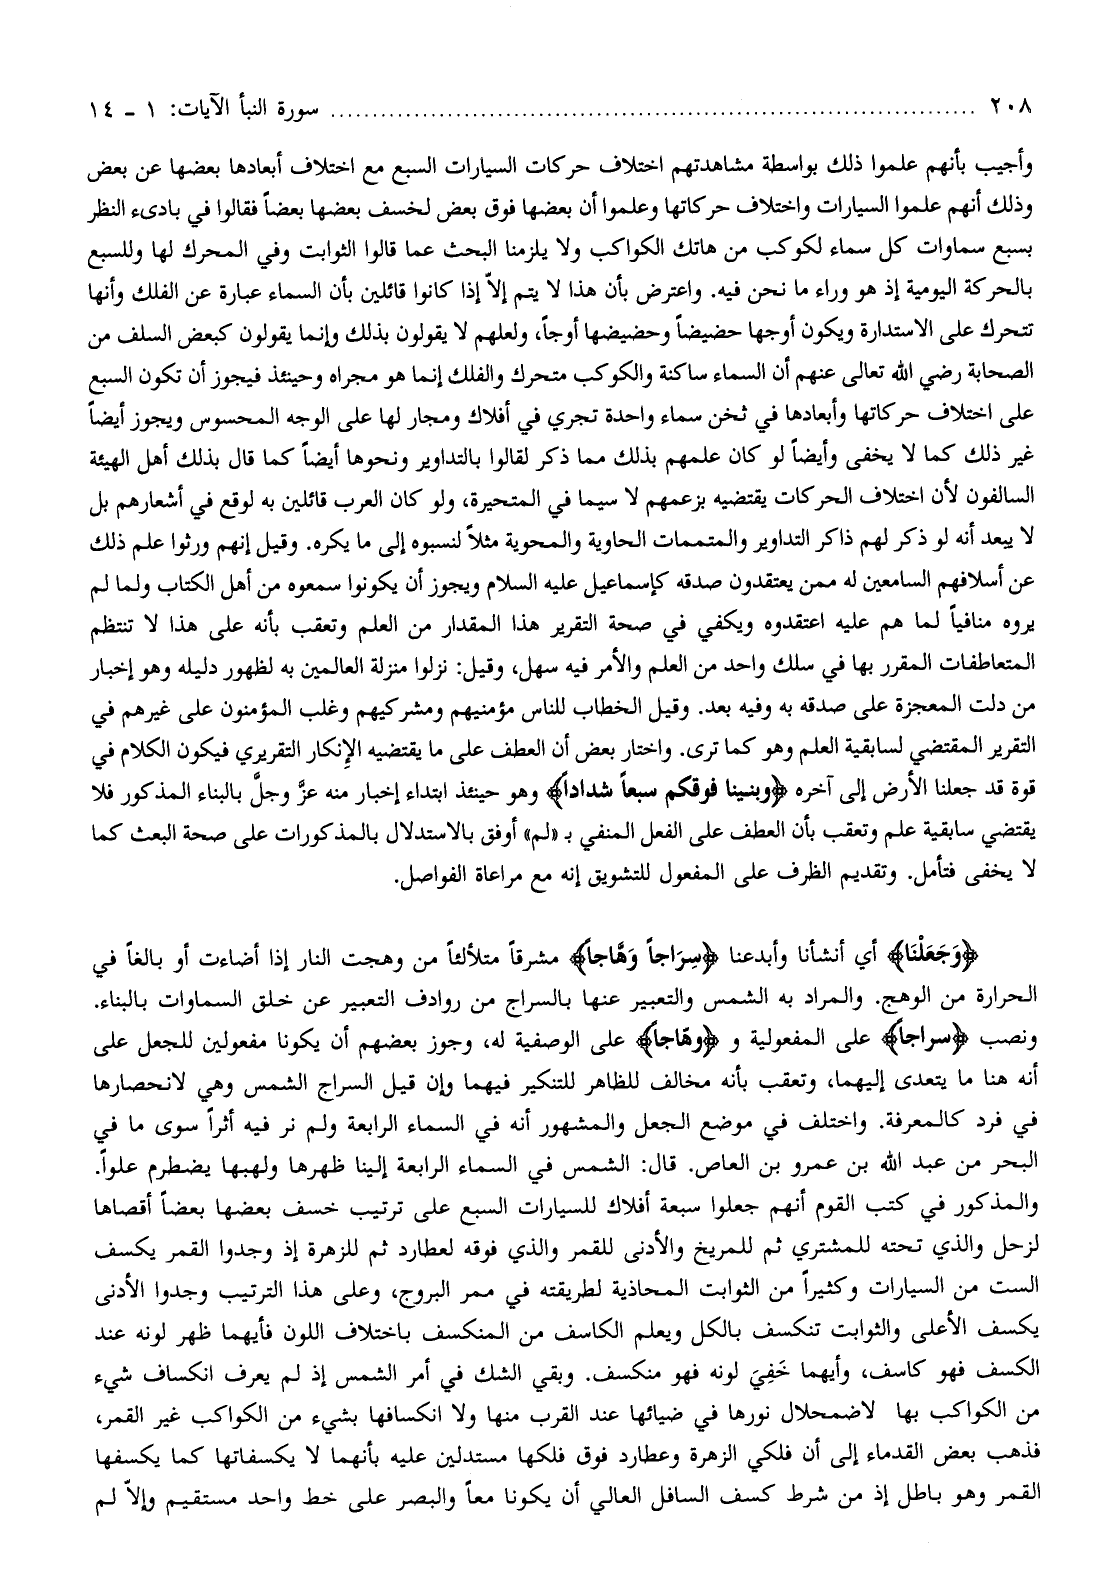 ٢٠٨ ........................................................................ سورة النبأ الآيات: ١ - ١٤
وأجيب بأنهم علموا ذلك بواسطة مشاهدتهم اختلاف حركات السيارات السبع مع اختلاف أبعادها بعضها عن بعض
وذلك أنهم علموا السيارات واختلاف حركاتها وعلموا أن بعضها فوق بعض لخسف بعضها بعضاً فقالوا في بادىء النظر
بسبع سماوات كل سماء لكوكب من هاتك الكواكب ولا يلزمنا البحث عما قالوا الثوابت وفي المحرك لها وللسبع
بالحركة اليومية إذ هو وراء ما نحن فيه. واعترض بأن هذا لا يتم إلاّ إذا كانوا قائلين بأن السماء عبارة عن الفلك وأنها
تتحرك على الاستدارة ويكون أوجها حضيضاً وحضيضها أوجاً، ولعلهم لا يقولون بذلك وإنما يقولون كبعض السلف من
الصحابة رضي الله تعالى عنهم أن السماء ساكنة والكوكب متحرك والفلك إنما هو مجراه وحينئذ فيجوز أن تكون السبع
على اختلاف حركاتها وأبعادها في ثخن سماء واحدة تجري في أفلاك ومجار لها على الوجه المحسوس ويجوز أيضاً
غير ذلك كما لا يخفى وأيضاً لو كان علمهم بذلك مما ذكر لقالوا بالتداوير ونحوها أيضاً كما قال بذلك أهل الهيئة
السالفون لأن اختلاف الحركات يقتضيه بزعمهم لا سيما في المتحيرة، ولو كان العرب قائلين به لوقع في أشعارهم بل
لا يبعد أنه لو ذكر لهم ذاكر التداوير والمتممات الحاوية والمحوية مثلاً لنسبوه إلى ما يكره. وقيل إنهم ورثوا علم ذلك
عن أسلافهم السامعين له ممن يعتقدون صدقه كإسماعيل عليه السلام ويجوز أن يكونوا سمعوه من أهل الكتاب ولما لم
يروه منافياً لما هم عليه اعتقدوه ويكفي في صحة التقرير هذا المقدار من العلم وتعقب بأنه على هذا لا تنتظم
المتعاطفات المقرر بها في سلك واحد من العلم والأمر فيه سهل، وقيل: نزلوا منزلة العالمين به لظهور دليله وهو إخبار
من دلت المعجزة على صدقه به وفيه بعد. وقيل الخطاب للناس مؤمنيهم ومشركيهم وغلب المؤمنون على غيرهم في
التقرير المقتضي لسابقية العلم وهو كما ترى. واختار بعض أن العطف على ما يقتضيه الإنكار التقريري فيكون الكلام في
قوة قد جعلنا الأرض إلى آخره ﴿وبنينا فوقكم سبعاً شداداً﴾ وهو حينئذ ابتداء إخبار منه عزَّ وجلَّ بالبناء المذكور فلا
يقتضي سابقية علم وتعقب بأن العطف على الفعل المنفي بـ «لم» أوفق بالاستدلال بالمذكورات على صحة البعث كما
لا يخفى فتأمل. وتقديم الظرف على المفعول للتشويق إنه مع مراعاة الفواصل.
﴿وَجَعَلْنَا﴾ أي أنشأنا وأبدعنا ﴿سِرَاجاً وَهَّاجاً﴾ مشرقاً متلألئاً من وهجت النار إذا أضاءت أو بالغاً في
الحرارة من الوهج. والمراد به الشمس والتعبير عنها بالسراج من روادف التعبير عن خلق السماوات بالبناء.
ونصب ﴿سراجاً﴾ على المفعولية و ﴿وهّاجاً﴾ على الوصفية له، وجوز بعضهم أن يكونا مفعولين للجعل على
أنه هنا ما يتعدى إليهما، وتعقب بأنه مخالف للظاهر للتنكير فيهما وإن قيل السراج الشمس وهي لانحصارها
في فرد كالمعرفة. واختلف في موضع الجعل والمشهور أنه في السماء الرابعة ولم نر فيه أثراً سوى ما في
البحر من عبد الله بن عمرو بن العاص. قال: الشمس في السماء الرابعة إلينا ظهرها ولهبها يضطرم علواً.
والمذكور في كتب القوم أنهم جعلوا سبعة أفلاك للسيارات السبع على ترتيب خسف بعضها بعضاً أقصاها
لزحل والذي تحته للمشتري ثم للمريخ والأدنى للقمر والذي فوقه لعطارد ثم للزهرة إذ وجدوا القمر يكسف
الست من السيارات وكثيراً من الثوابت المحاذية لطريقته في ممر البروج، وعلى هذا الترتيب وجدوا الأدنى
يكسف الأعلى والثوابت تنكسف بالكل ويعلم الكاسف من المنكسف باختلاف اللون فأيهما ظهر لونه عند
الكسف فهو كاسف، وأيهما خَفِيَ لونه فهو منكسف. وبقي الشك في أمر الشمس إذ لم يعرف انكساف شيء
من الكواكب بها لاضمحلال نورها في ضيائها عند القرب منها ولا انكسافها بشيء من الكواكب غير القمر،
فذهب بعض القدماء إلى أن فلكي الزهرة وعطارد فوق فلكها مستدلين عليه بأنهما لا يكسفاتها كما يكسفها
القمر وهو باطل إذ من شرط كسف السافل العالي أن يكونا معاً والبصر على خط واحد مستقيم وإلاّ لم